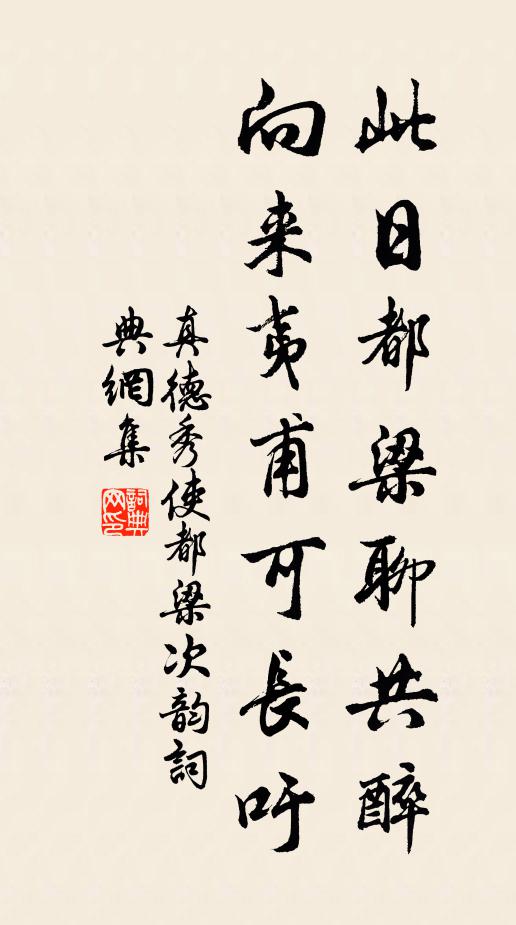 此日都梁聊共醉
向来夷甫可長吁
真德秀使都梁次韵詞
典網集
詞典网印